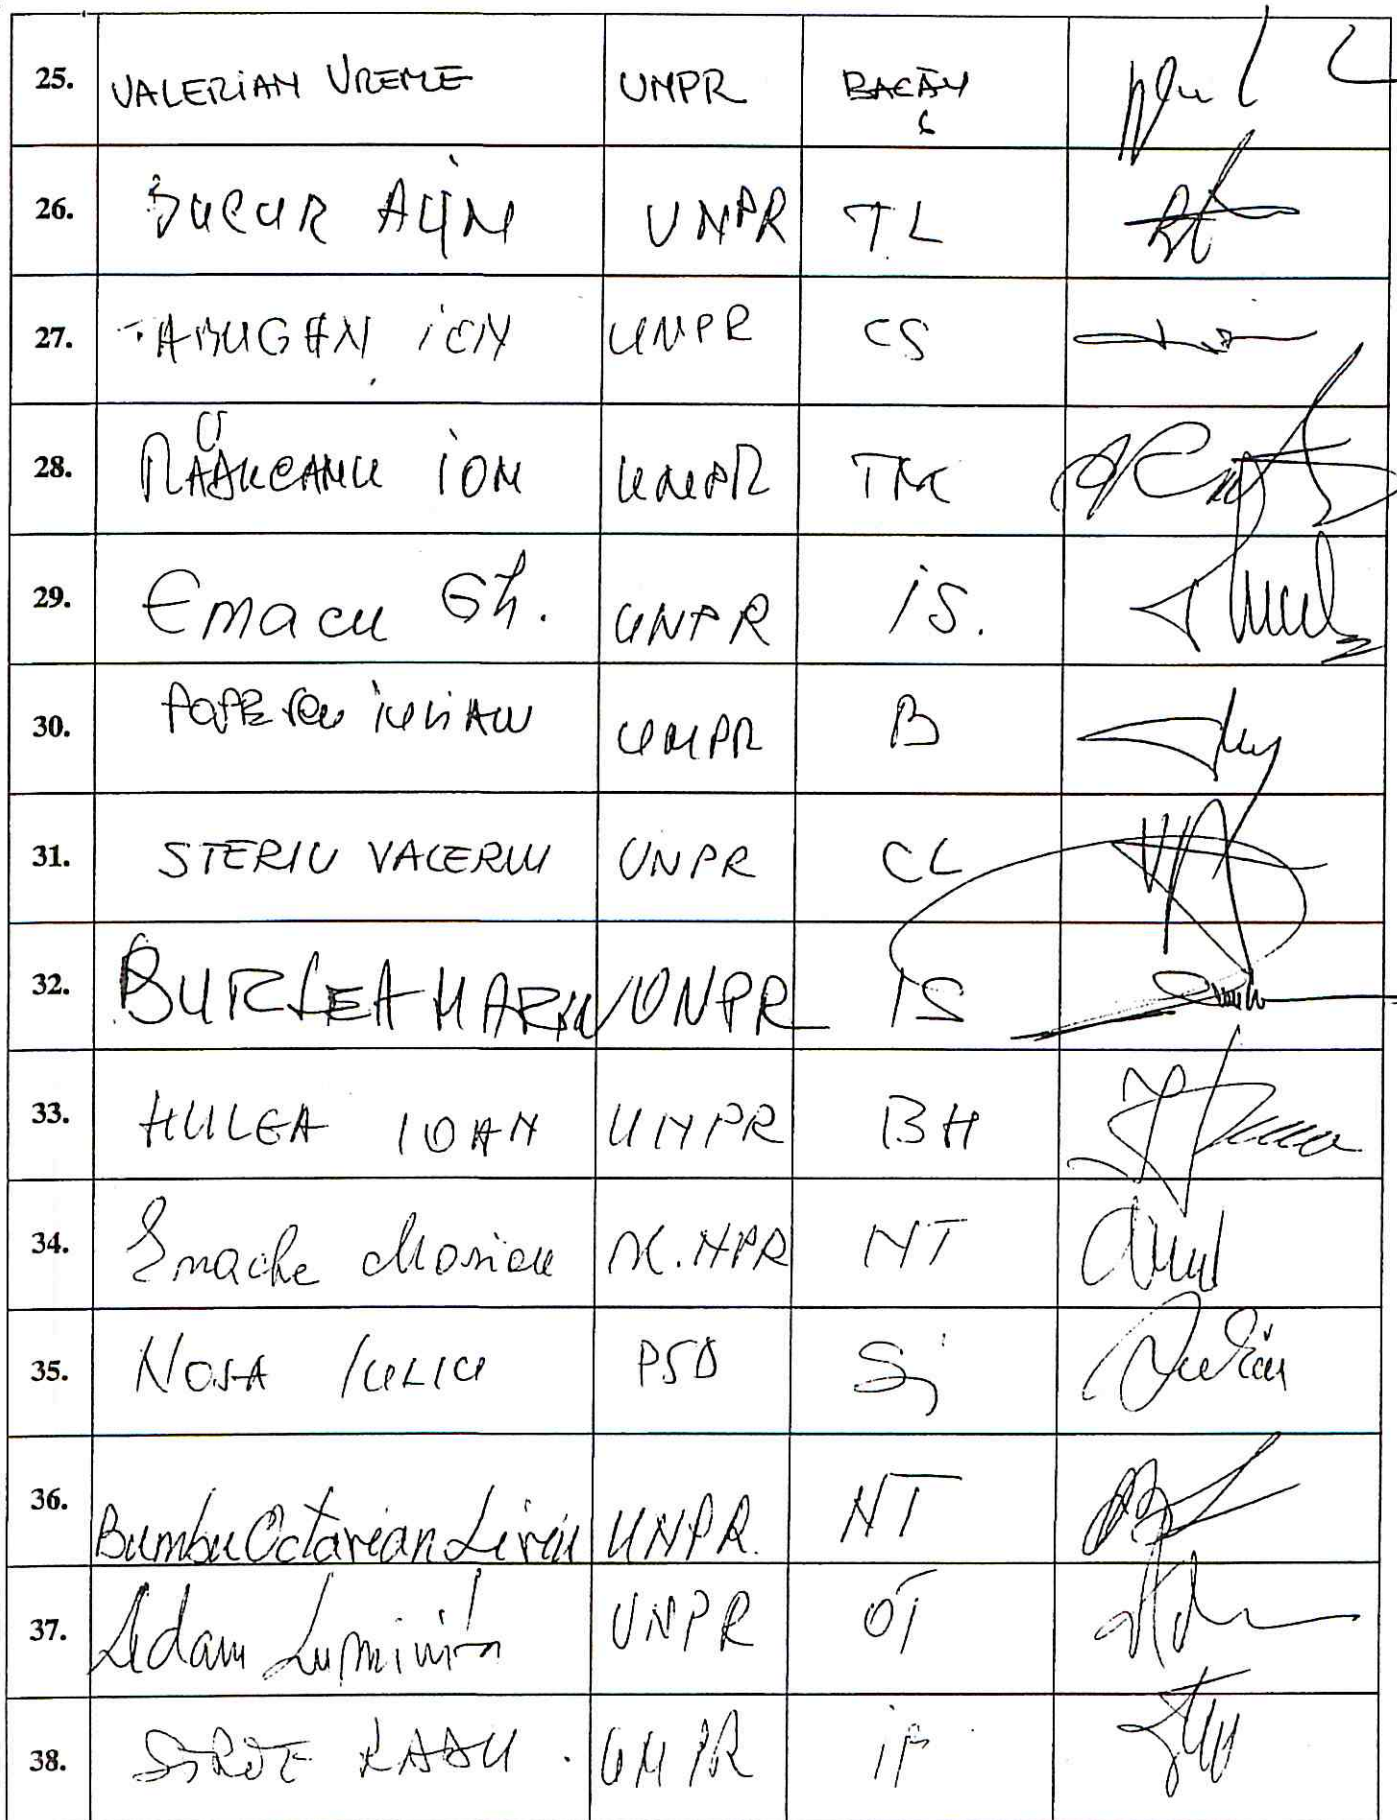 25. VALERIAN VREME UNPR BACĂU
6
26. BUCUR ALIN UNPR TL
27. TABUGAN ION UNPR CS
28. RĂDUCANU ION UNPR TM
29. Emacu Gh. UNPR IS.
30. POPESCU IULIAN UNPR B
31. STERIU VALERIU UNPR CL
32. BURLEA MARIN UNPR IS
33. HULEA IOAN UNPR BH
34. Enache Marian UNPR NT
35. NOSA IULIU PSD SJ
36. Bumbu Octavian Liviu UNPR. NT
37. Adam Luminița UNPR OT
38. SÎRBE RADU UNPR IF